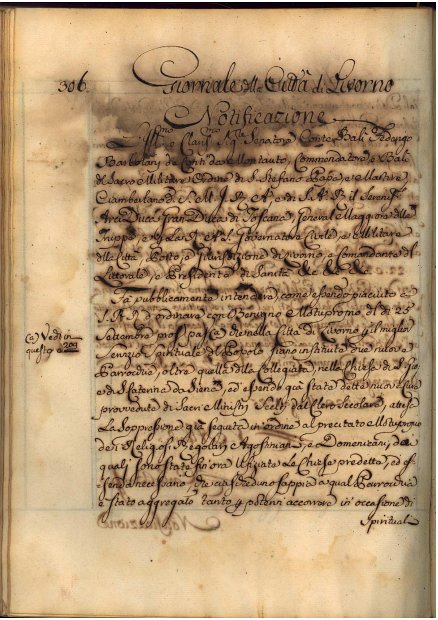 306.
Giornale della Città di Livorno
Notificazione
Ill.mo e Clariss.mo Sig.re Senatore Conte Balì Federigo
Barbolani de Conti da Montauto, Commendatore, e Balì
del Sacro Militare Ordine di S. Stefano Papa, e Martire
Ciamberlano di S. M. I. R. A. e di S. A. R. il Sereniss.
Arci Duca Gran Duca di Toscana, General Maggiore delle
Truppe, e Governatore Civile, e Militare
della Città, Porto, e Giurisdizione di Livorno, e Comandante del
Littorale, e Presidente di Sanità &c. &c. &c.
Fa pubblicamente intendere, come essendo piaciuto a
S. A. R. di ordinare con Benigno Motuproprio del dì 25
Settembre pross. pass. che nella Città di Livorno per il miglior
Servizio Spirituale del Popolo siano instituite due nuove
Parrocchie, oltre quella della Collegiata, nelle Chiese di S. Gio.
e di S. Caterina da Siena, ed essendo già state dette nuove Cure
provvedute di Sacri Ministri Scelti dal Clero Secolare, attesa
La Soppressione già seguita in ordine al precitato Motuproprio
dei Religiosi Regolari Agostiniani, e Domenicani, da
quali sono state fin'ora Ufiziate Le Chiese predette, ed es-
sendo necessario che ciascheduno sappia a qual Parrocchia
è stato aggregato tanto per potervi accorrere in occasione di
Spiritual
(a) Vedi in
questo a 299